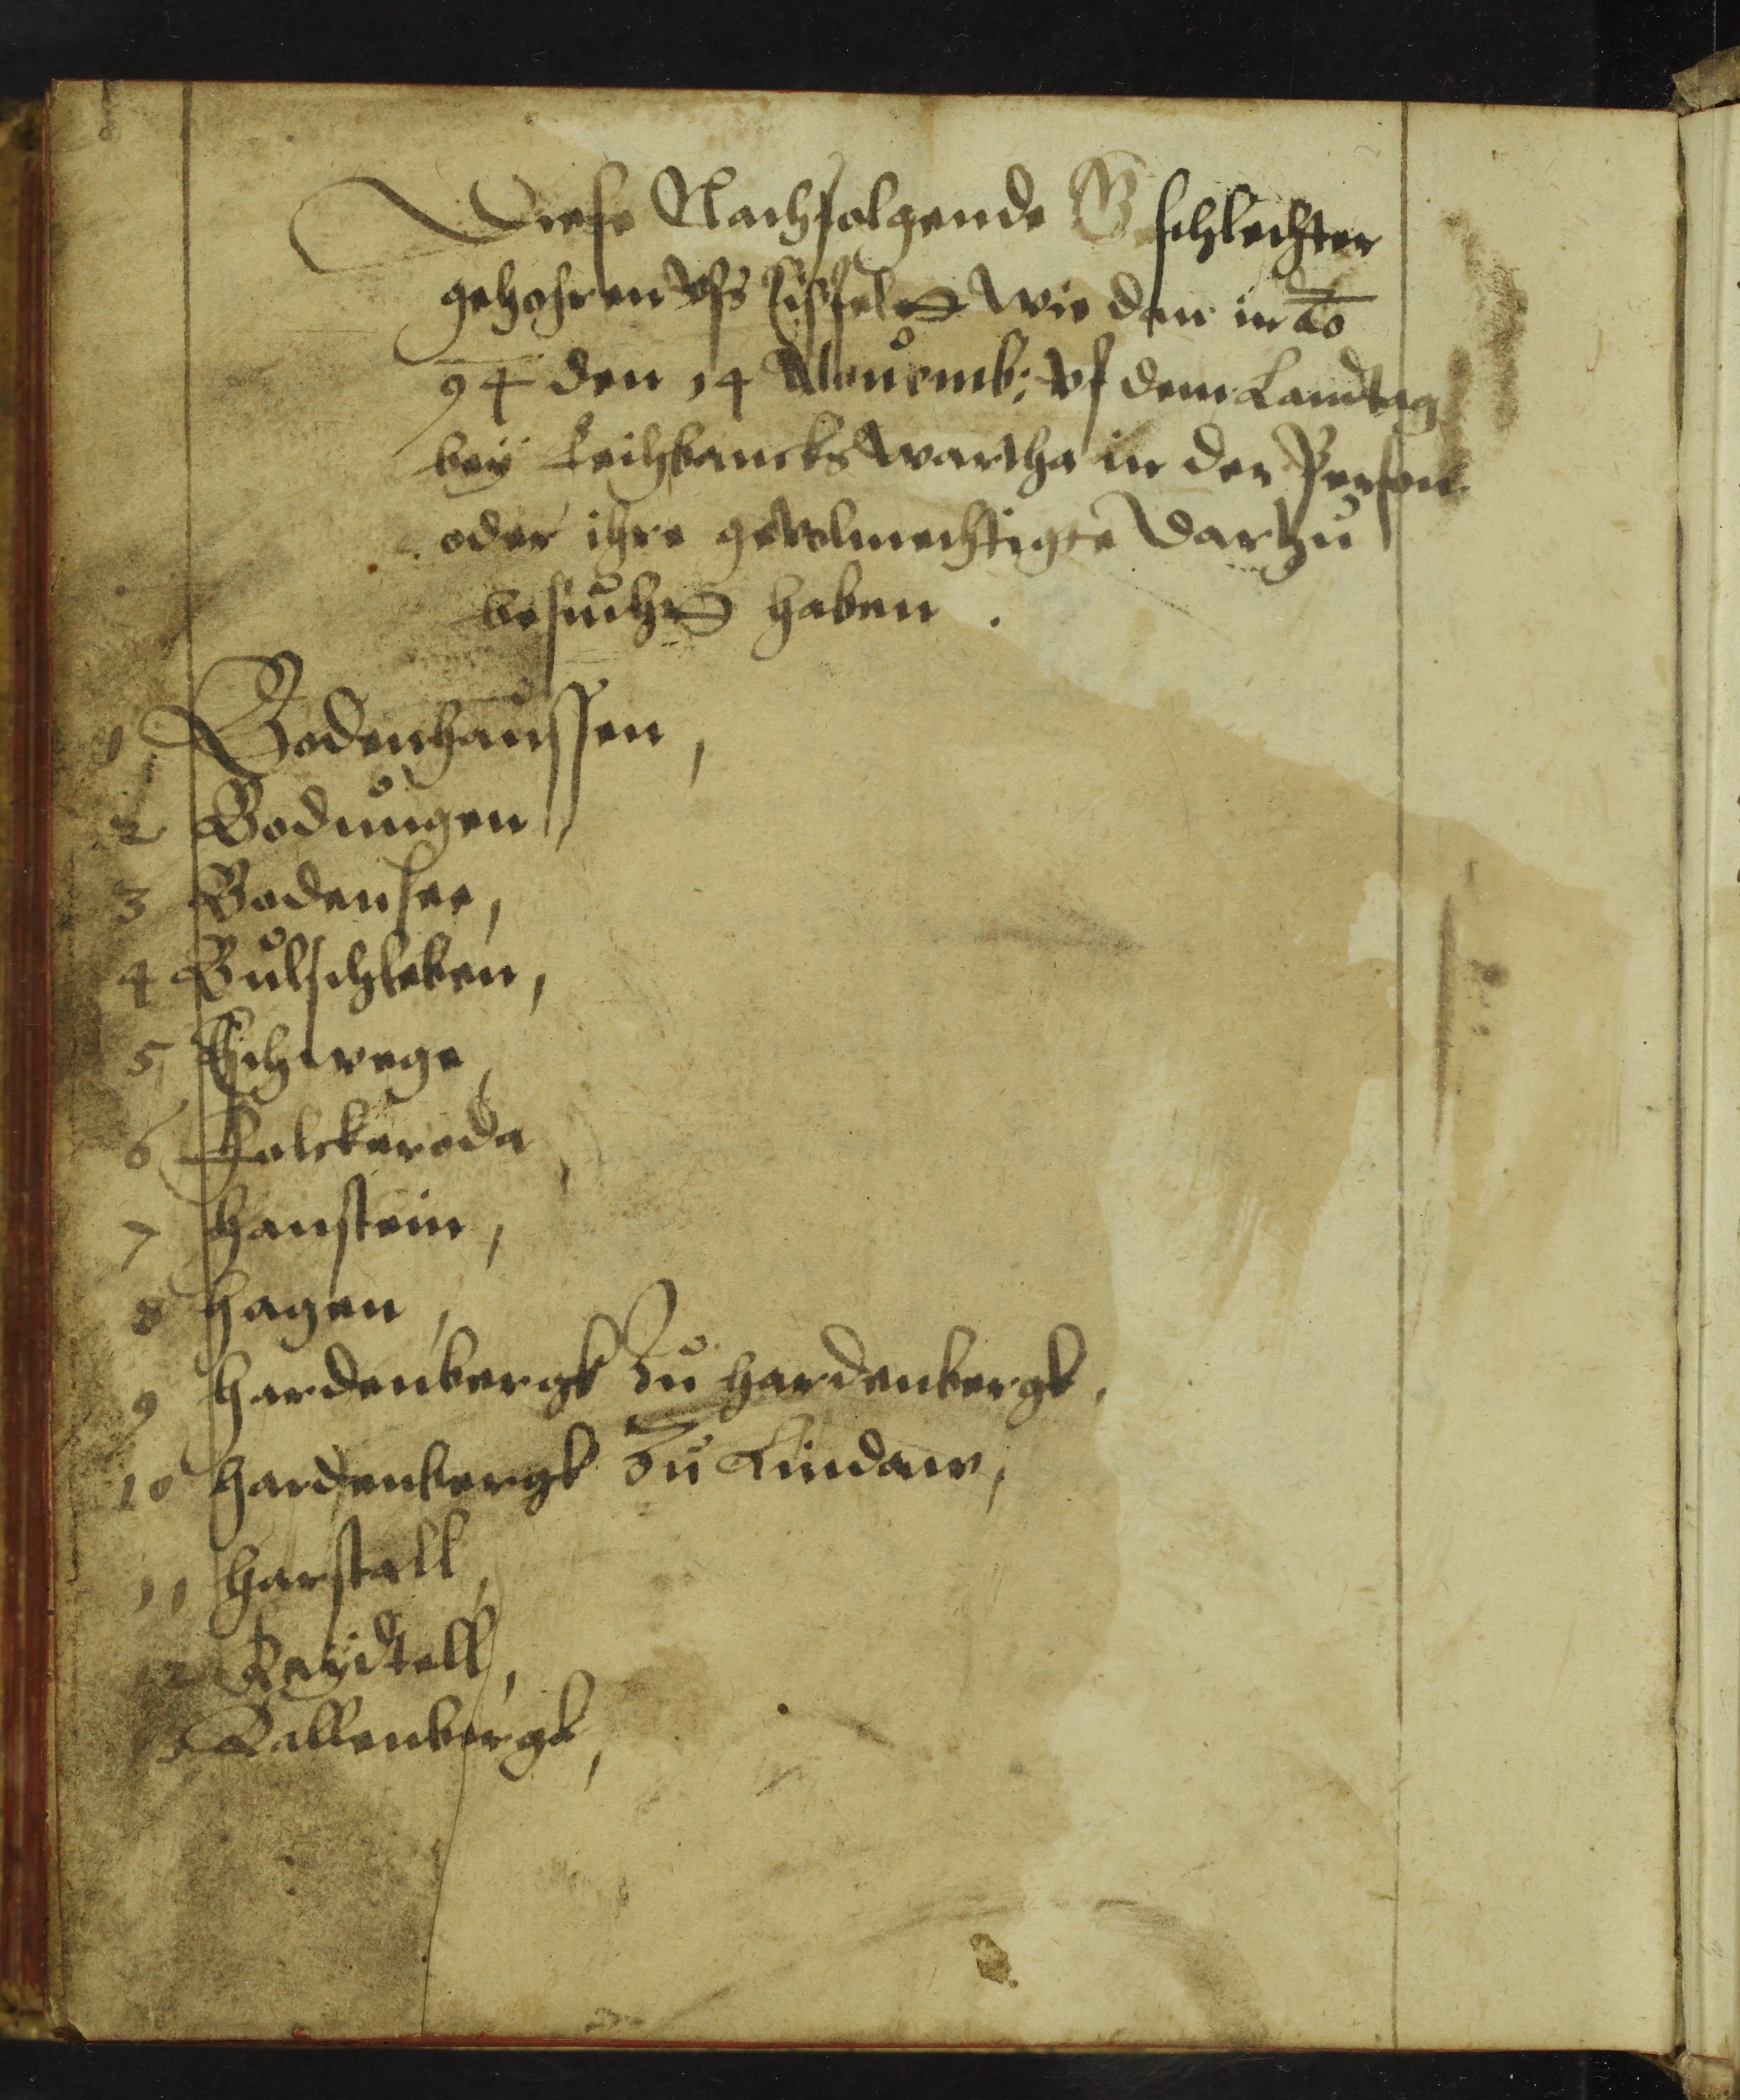 Diese Nachfolgende Geschlechter
gehohren vfs Eisfelt wie dan in ao
94 den 14 Nouemb: vf dem Landtag
bey wartha in der Person
oder ihre geVolmechtigte darhzu
besucht haben .
1 Bodenhaussen,
2 Bodungen
3 Bodensee,
4 Bulschleben,
5 Eschwege,
6 Folckeroda
7 Hanstein,
8 Hagen,
9 Hardenbergk Zu Hardenbergk,
10 Hardenbergk Zu Lindaw,
11 Harstall,
12 Keydtell,
Kallenbergk,